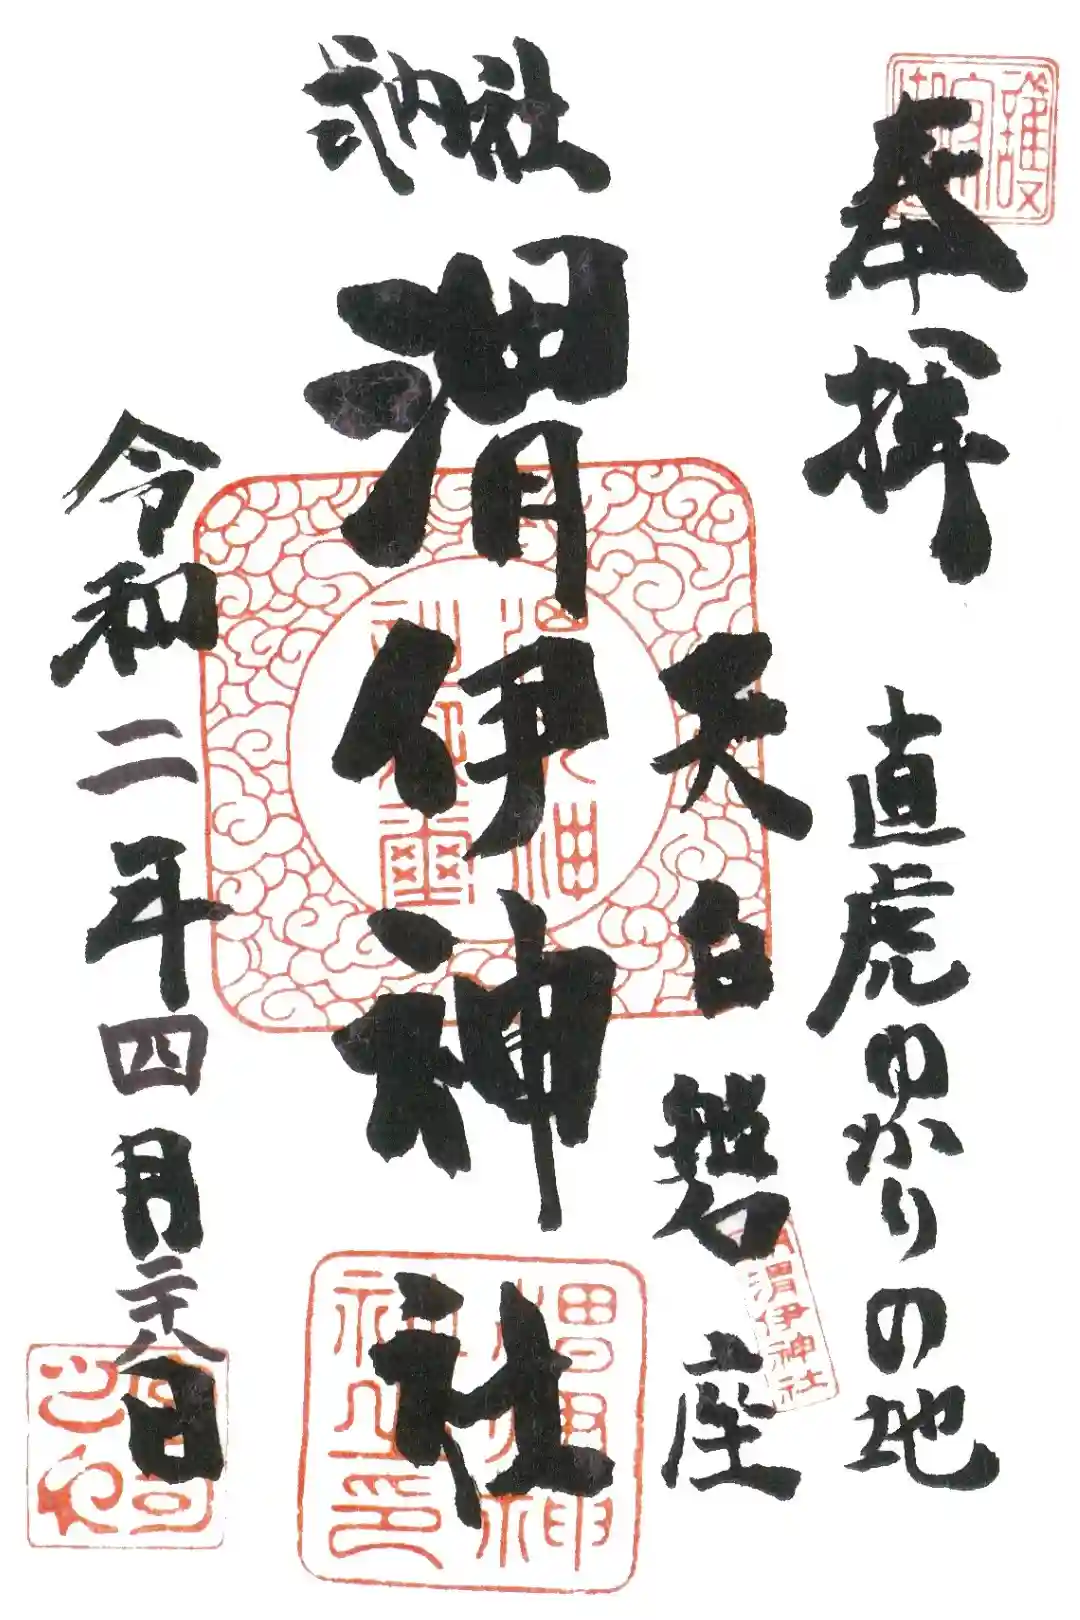 奉拝
直虎ゆかりの地
天白磐座
式内社
渭伊神社
令和二年四月二十八日
渭伊神社